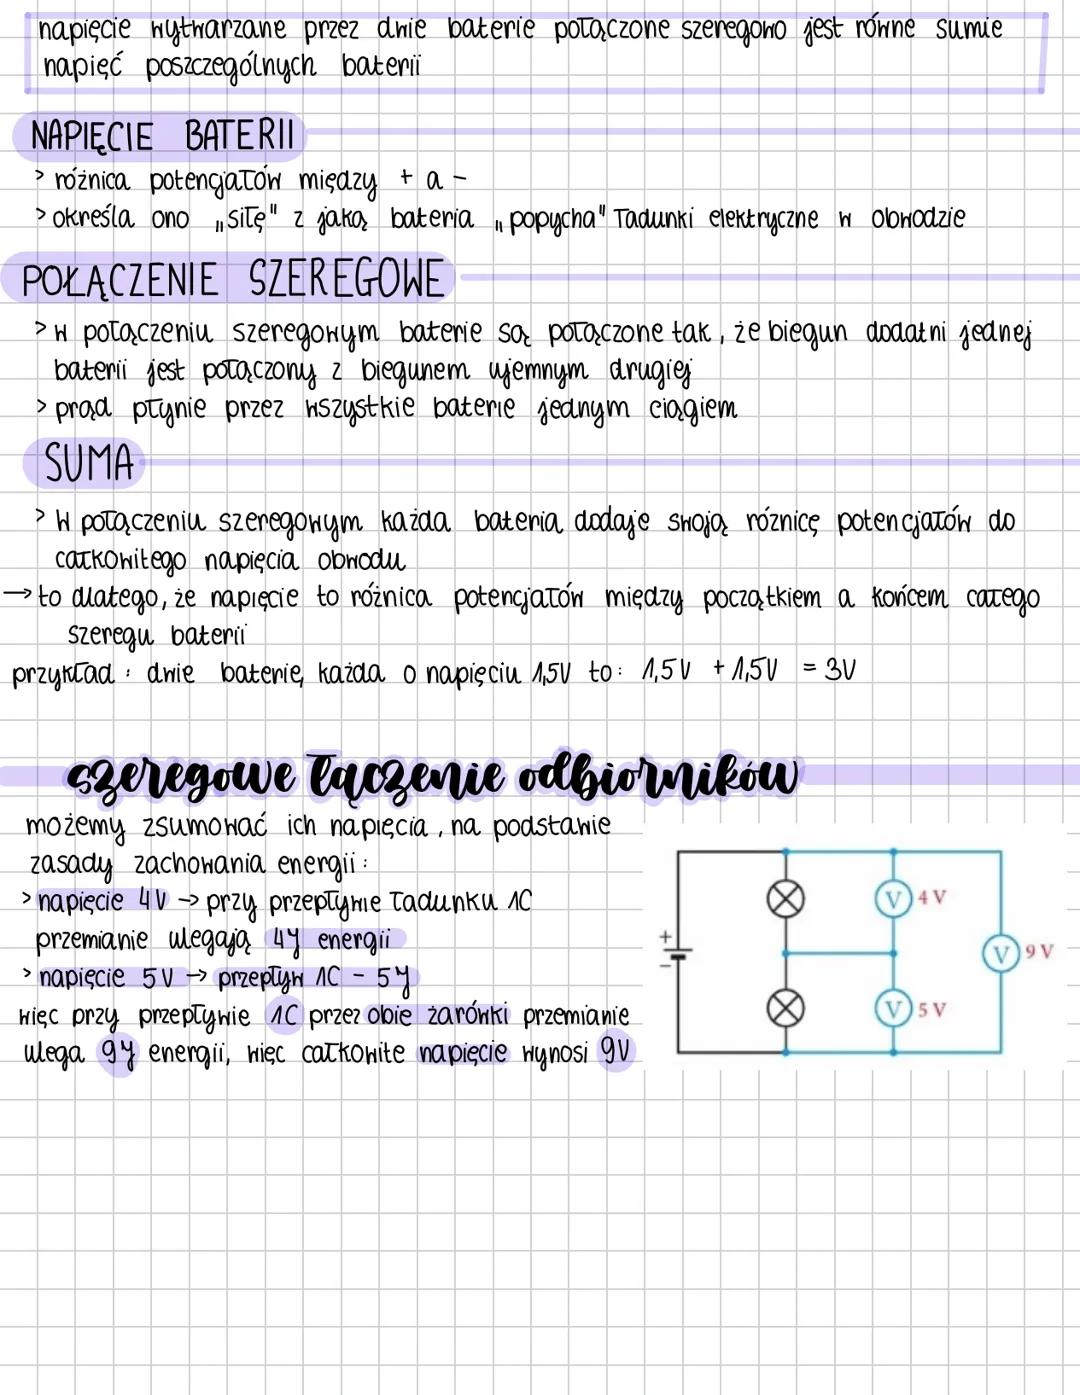 napięcie wytwarzane przez dwie baterie połączone szeregowo jest równe sumie
napięć poszczególnych baterii
NAPIĘCIE BATERII
> różnica potencjałów między + a -
> określa ono „siłę" z jaką bateria „popycha" ładunki elektryczne w obwodzie
POŁĄCZENIE SZEREGOWE
> w połączeniu szeregowym baterie są połączone tak, że biegun dodatni jednej
baterii jest połączony z biegunem ujemnym drugiej
> prąd płynie przez wszystkie baterie jednym ciągiem
SUMA
> w połączeniu szeregowym każda bateria dodaje swoją różnicę potencjałów do
całkowitego napięcia obwodu
→ to dlatego, że napięcie to różnica potencjałów między początkiem a końcem całego
szeregu baterii
przykład : dwie baterie, każda o napięciu 1,5V to: 1,5V + 1,5V = 3V
szeregowe łączenie odbiorników
możemy zsumować ich napięcia, na podstawie
zasady zachowania energii :
> napięcie 4V → przy przepływie ładunku 1C
przemianie ulegają 4J energii
> napięcie 5V → przepływ 1C - 5J
więc przy przepływie 1C przez obie żarówki przemianie
ulega 9J energii, więc całkowite napięcie wynosi 9V
+
−
V 4 V
V 9 V
V 5 V